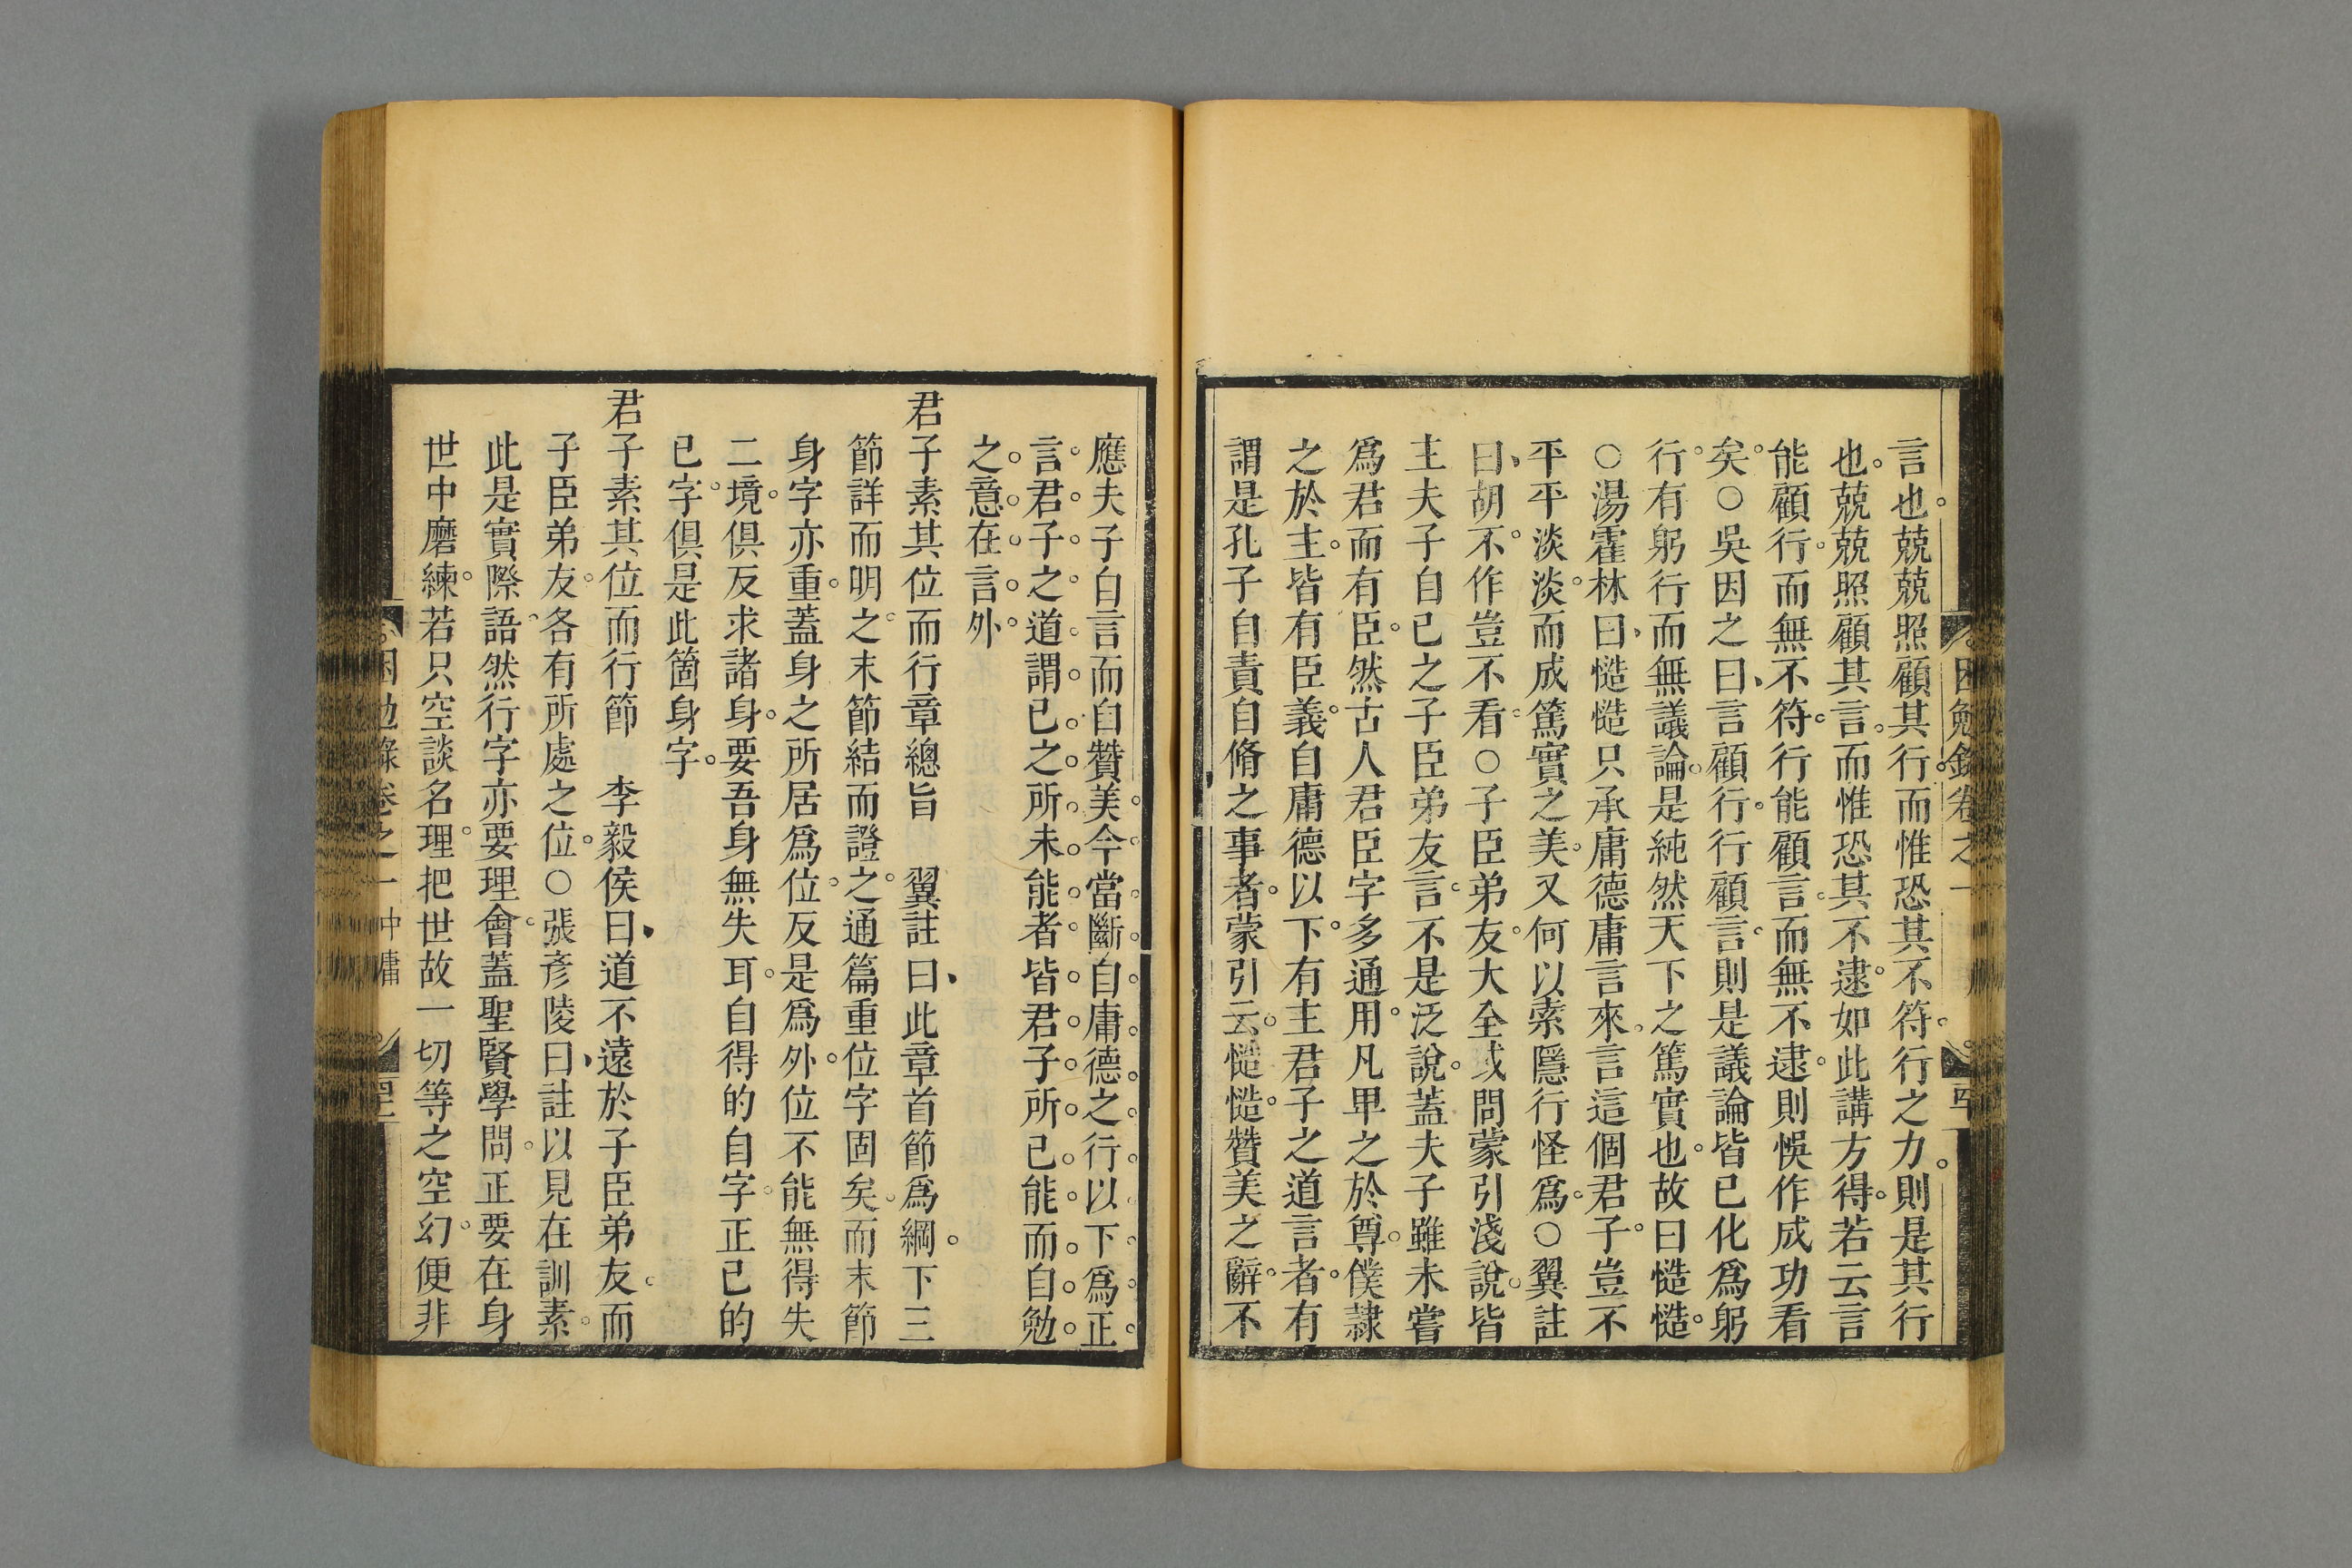 言也兢兢照顧其行而惟恐其不符行之力則是其行
也兢兢照顧其言而惟恐其不逮如此講方得若云言
能顧行而無不符行能顧言而無不逮則悞作成功看
矣○吳因之曰言顧行行顧言則是議論皆已化爲躬
行有躬行而無議論是純然天下之篤實也故曰慥慥
○湯霍林曰慥慥只承庸德庸言來言這個君子豈不
平平淡淡而成篤實之美又何以索隱行怪爲○翼註
曰胡不作豈不看○子臣弟友大全或問蒙引淺說皆
主夫子自己之子臣弟友言不是泛說蓋夫子雖未嘗
爲君而有臣然古人君臣字多通用凡卑之於尊僕隷
之於主皆有臣義自庸德以下有主君子之道言者有
謂是孔子自責自脩之事者蒙引云慥慥贊美之辭不
應夫子自言而自贊美今當斷自庸德之行以下爲正
言君子之道謂己之所未能者皆君子所已能而自勉
之意在言外
君子素其位而行章總旨 翼註曰此章首節爲綱下三
節詳而明之末節結而證之通篇重位字固矣而末節
身字亦重蓋身之所居爲位反是爲外位不能無得失
二境俱反求諸身要吾身無失耳自得的自字正己的
己字俱是此箇身字
君子素其位而行節 李毅侯曰道不遠於子臣弟友而
子臣弟友各有所處之位○張彥陵曰註以見在訓素
此是實際語然行字亦要理會蓋聖賢學問正要在身
世中磨練若只空談名理把世故一切等之空幻便非
困勉錄卷之一 中庸